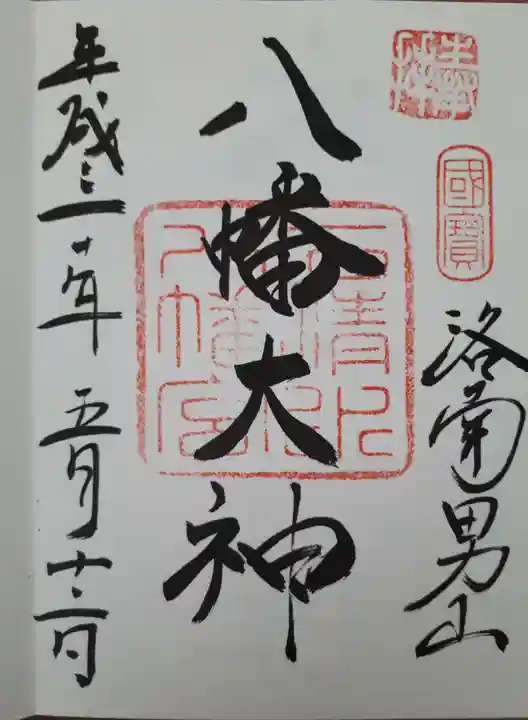 奉拝
國寶
洛南男山
八幡大神
石清水八幡宮
平成三十年 五月十二日